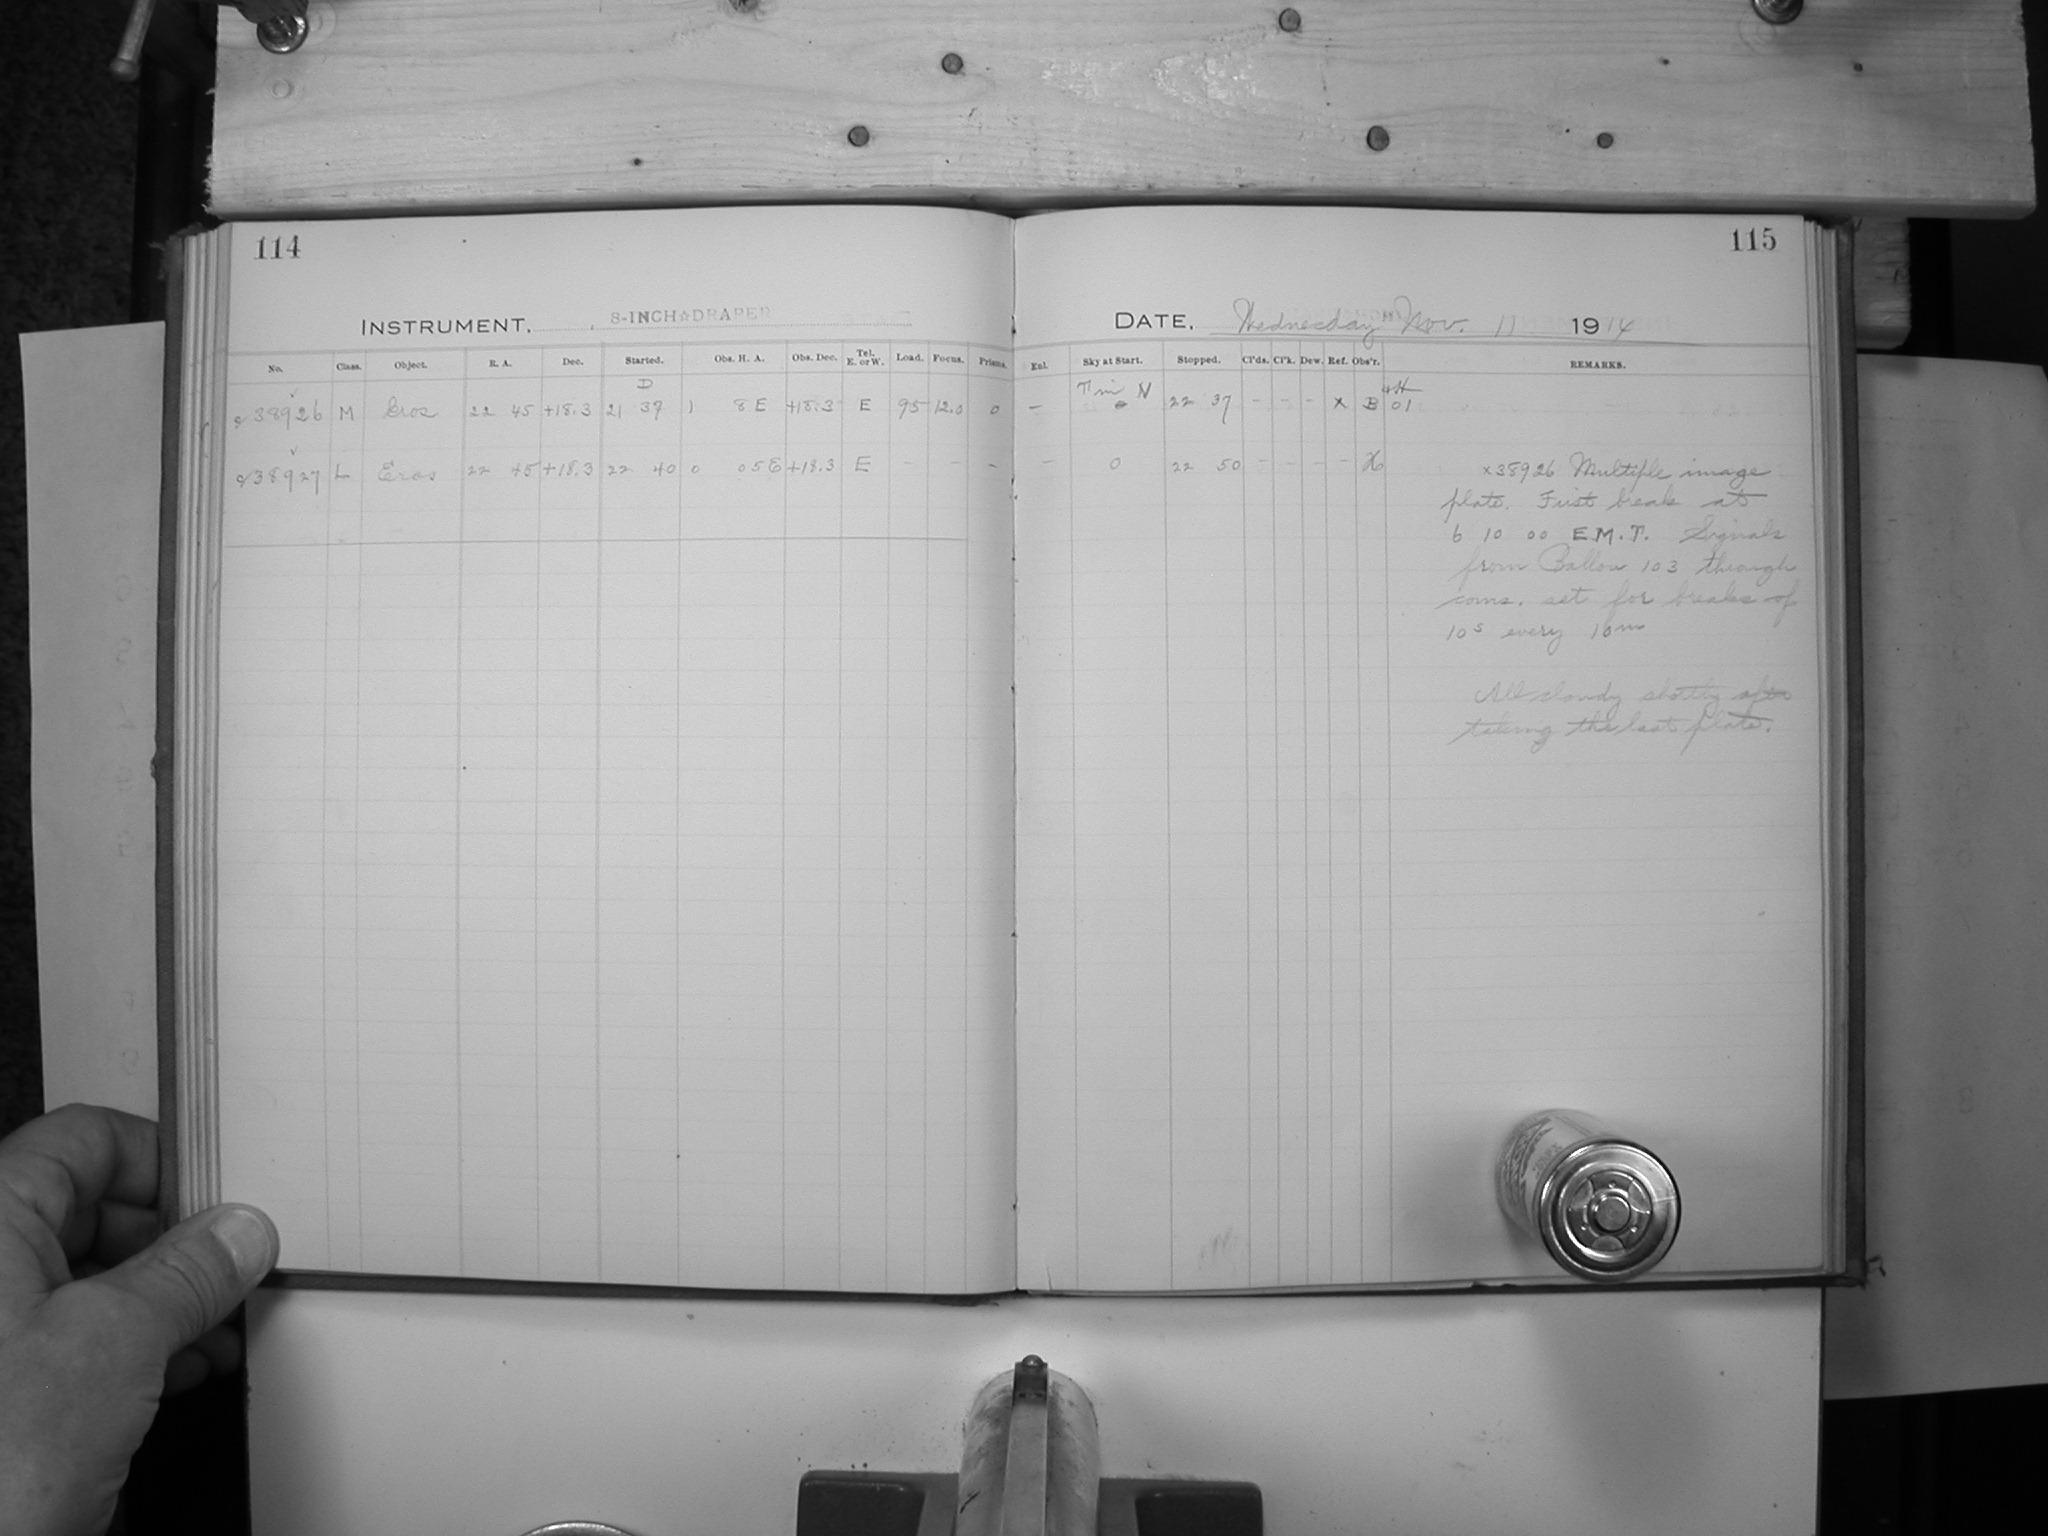 114
INSTRUMENT, 8-INCH☆DRAPER
No. Class. Object. R. A. Dec. Started. Obs. H. A. Obs. Dec. Tel. E. or W. Load. Focus. Prisms.
D
38926 M Eros 22 45 +18.3 21 37 1 8 E +18.3 E 95 12.0 0
38927 L Eros 22 45 +18.3 22 40 0 05 E +18.3 E - - -
115
DATE, Wednesday Nov. 11 1914
Enl. Sky at Start. Stopped. Cl'ds. Cl'k. Dew. Ref. Obs'r. REMARKS.
- 0 22 37 - - - x B 01
- 0 22 50 - - - -
x38926 Multiple image
plate. First break at
6 10 00 E.M.T. Signals
from Ballou 103 through
coms. set for breaks of
10s every 10m
All cloudy shortly after
taking the last plate.